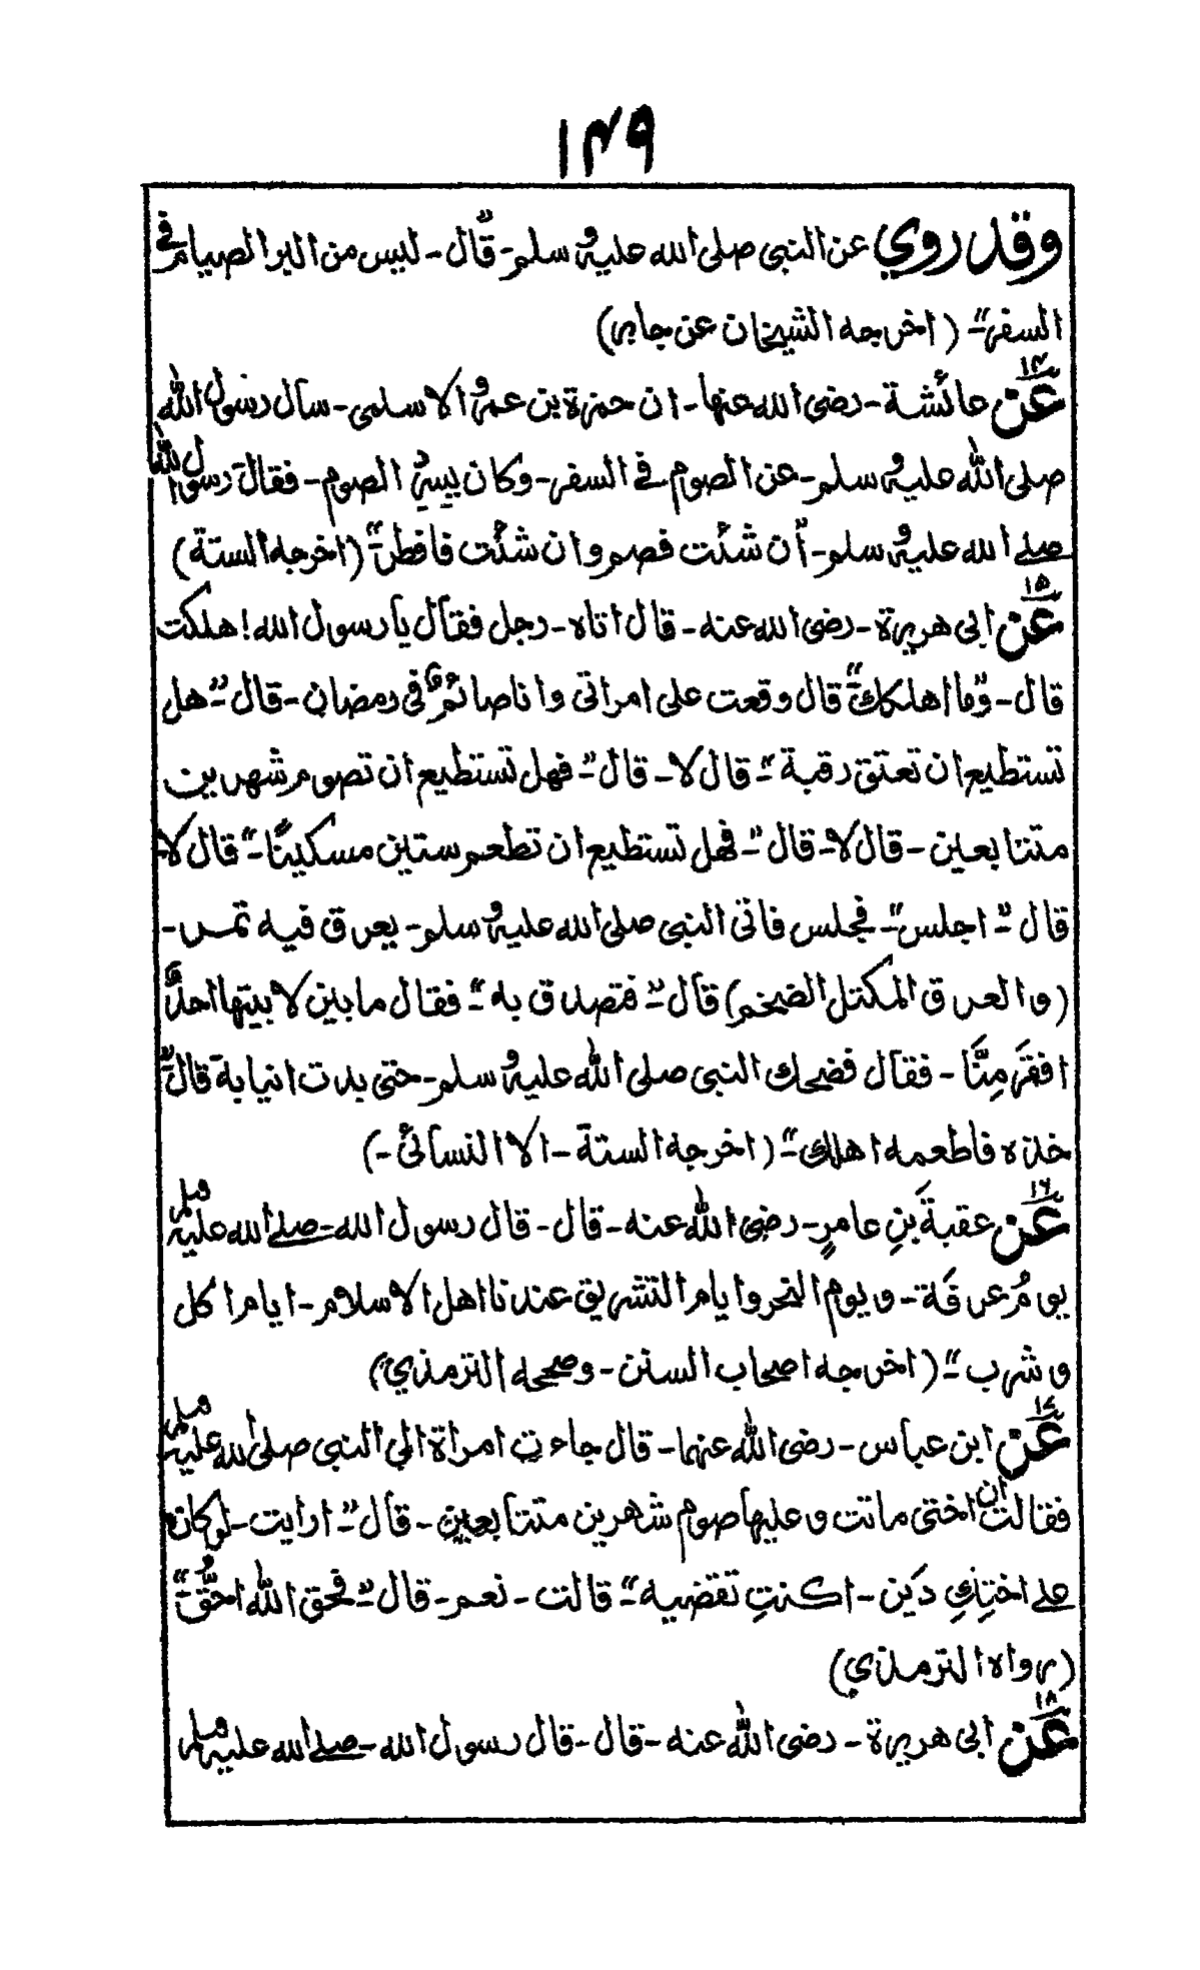 ۱۴۹
وقد روي عن النبی صلی الله علیه وسلم۔ قال۔ لیس من البر الصیام فی
السفر" ۔ (اخرجه الشیخان عن جابر)
۱۴ عن عائشة۔ رضی الله عنها۔ ان حمزة بن عمرو الاسلمی۔ سأل رسول الله
صلی الله علیه وسلم۔ عن الصوم فی السفر۔ وکان یسرد الصوم۔ فقال رسول الله
صلے الله علیه وسلم۔ "ان شئت فصم وان شئت فافطر" (اخرجه الستة)
۱۵ عن ابی هریرة۔ رضی الله عنه۔ قال اتاه۔ رجل فقال یا رسول الله! هلکت
قال۔ "وما اهلکك" قال وقعت علی امراتی وانا صائم فی رمضان۔ قال۔ "هل
تستطیع ان تعتق رقبة"۔ قال لا۔ قال۔" فهل تستطیع ان تصوم شهرین
متتابعین۔ قال لا۔ قال۔" فهل تستطیع ان تطعم ستین مسکینًا۔" قال لا۔
قال۔" اجلس"۔ فجلس فاتی النبی صلی الله علیه وسلم۔ بعرق فیه تمر۔
(والعرق المکتل الضخم) قال۔" فتصدق به"۔ فقال ما بین لابیتها احدٌ
افقرَ مِنَّا۔ فقال فضحك النبی صلی الله علیه وسلم۔ حتی بدت انیابة قال"
خذه فاطعمه اهلك"۔ (اخرجه الستة۔ الا النسائی۔)
۱۶ عن عقبةَ بنِ عامرٍ۔ رضی الله عنه۔ قال۔ قال رسول الله۔ صلے الله علیه وسلم
یومُ عرفَة۔ ویوم النحر وایام التشریق عندنا اهل الاسلام۔ ایام اکل
وشرب"۔ (اخرجه اصحاب السنن۔ وصححه الترمذي)
۱۷ عن ابن عباس۔ رضی الله عنهما۔ قال جاءت امراة الی النبی صلی الله علیه وسلم
فقالت ان اختی ماتت وعلیها صوم شهرین متتابعین۔ قال۔" ارایت۔ لوکان
علے اختِكِ دَین۔ اکنتِ تقضیه"۔ قالت۔ نعم۔ قال۔" فحق الله احَقُّ"
(رواه الترمذي)
۱۸ عن ابی هریرة۔ رضی الله عنه۔ قال۔ قال رسول الله۔ صلے الله علیه وسلم